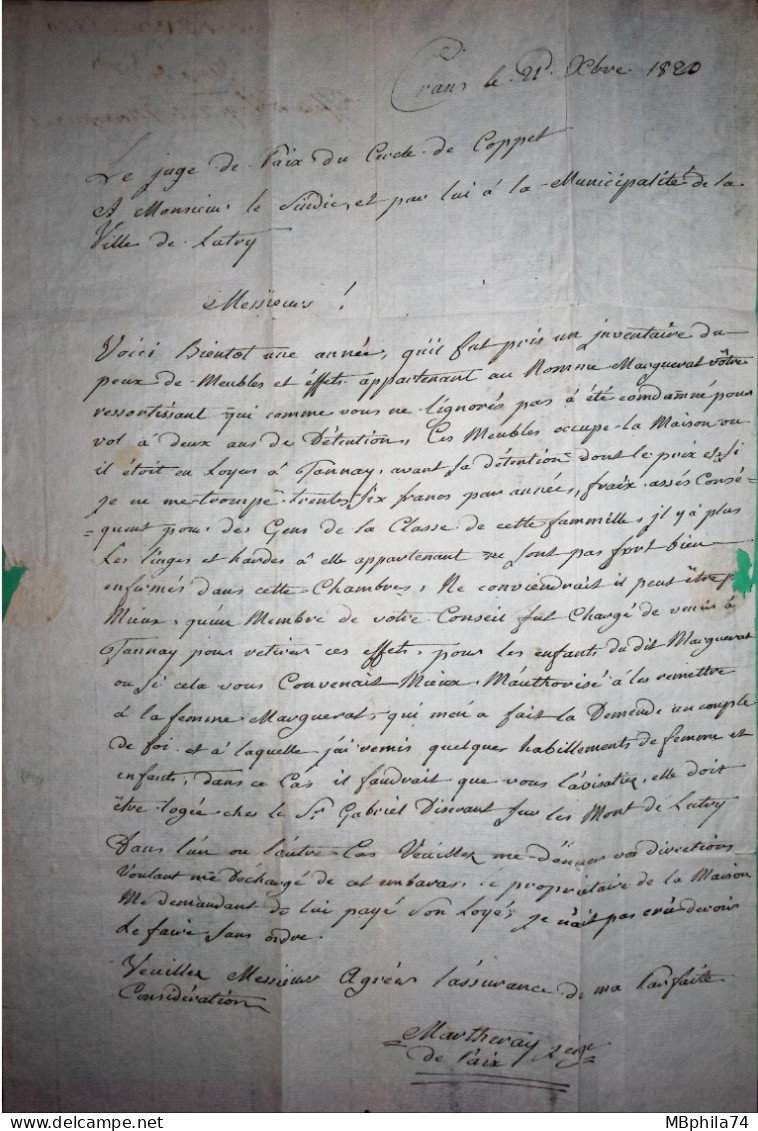 Crans le 21e Xbre 1820
Le juge de Paix du Cercle de Coppet
A Monsieur le Sindic, et par lui à la Municipalité de la
Ville de Lutry
Messieurs !
Voici Bientot une année, qu'il fut pris un inventaire du
peux de Meubles et éffets appartenant au Nommé Marguerat vôtre
ressortissant qui comme vous ne L'ignorés pas à été comdamné pour
vol à deux ans de Détention, Ces Meubles occupe la Maison ou
il êtoit en Loyer à Tannay, avant sa détention dont le prix est si
je ne me trompe trente six francs par année, fraix assés Consé=
=quent pour des Gens de la Classe de cette fammille, il y à plus
Les linges et hardes à elle appartenant ne sont pas fort bien
enfermés dans cette Chambres, Ne conviendrait il peut être
Mieux, qu'un Membre de votre Conseil fut Chargé de venir à
Tannay pour retirer ces effets, pour les enfants du dit Marguerat
ou si cela vous Convenait Mieux, M'authorisé à les remettre
à la femme Marguerat, qui m'en a fait la Demande un couple
de foi et à laquelle j'ai remis quelques habillements de femme et
enfants, dans ce Cas il faudrait que vous l'avisatiez, elle doit
être logée chez le Sr Gabriel Diserant sur les Mont de Lutry
Dans l'un ou l'autre Cas Veuillez me donner vos directions
Voulant me Déchargé de cet embaras, le propriétaire de la Maison
Me demandant de lui payé son Loyés, je n'ait pas crû devoir
Le faire sans ordre.
Veuillez Messieurs Agréer l'assurance de ma Parfaite
Considération
Martheray Juge
de Paix
MBphila74